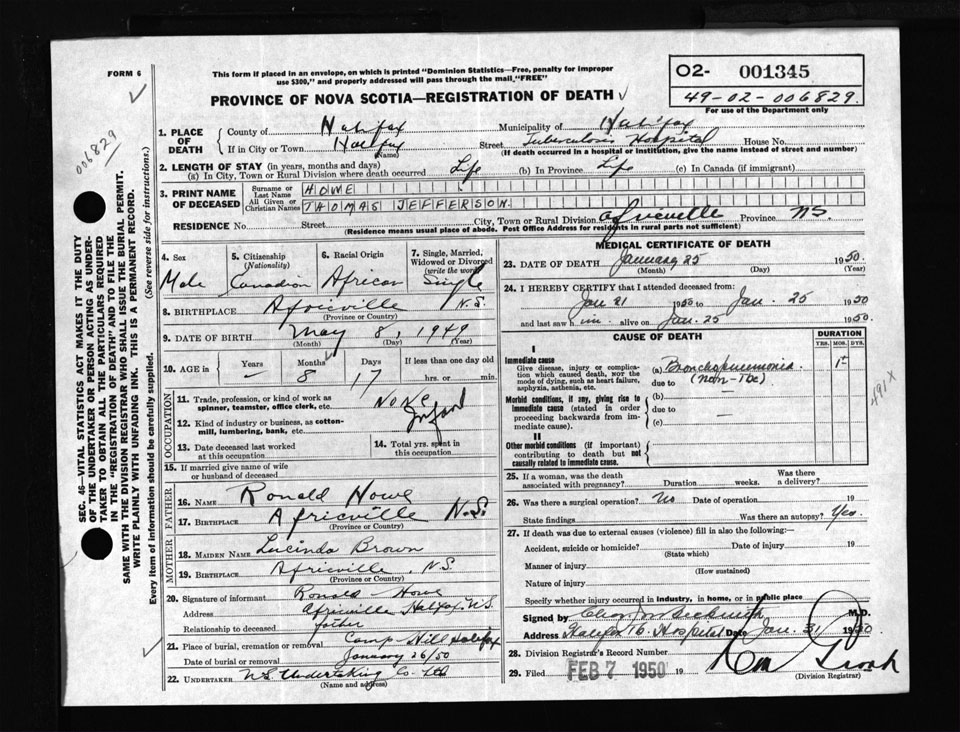 FORM 6
This form if placed in an envelope, on which is printed "Dominion Statistics—Free, penalty for improper
use $300," and properly addressed will pass through the mail, "FREE"
O2- 001345
49-02-006829.
For use of the Department only
PROVINCE OF NOVA SCOTIA—REGISTRATION OF DEATH
006829
1. PLACE OF DEATH
County of Halifax Municipality of Halifax
If in City or Town Halifax (Name) Street Tuberculosis Hospital House No.
(If death occurred in a hospital or institution, give the name instead of street and number)
2. LENGTH OF STAY (in years, months and days)
(a) In City, Town or Rural Division where death occurred Life (b) In Province Life (c) In Canada (if immigrant)
3. PRINT NAME OF DECEASED
Surname or Last Name HOWE
All Given or Christian Names THOMAS JEFFERSON.
RESIDENCE No. Street City, Town or Rural Division Africville Province NS
(Residence means usual place of abode. Post Office Address for residents in rural parts not sufficient)
SEC. 46—VITAL STATISTICS ACT MAKES IT THE DUTY
OF THE UNDERTAKER OR PERSON ACTING AS UNDER-
TAKER TO OBTAIN ALL THE PARTICULARS REQUIRED
IN THE "REGISTRATION OF DEATH" AND TO FILE THE
SAME WITH THE DIVISION REGISTRAR WHO SHALL ISSUE THE BURIAL PERMIT.
WRITE PLAINLY WITH UNFADING INK. THIS IS A PERMANENT RECORD.
Every item of information should be carefully supplied. (See reverse side for instructions.)
4. Sex 5. Citizenship (Nationality) 6. Racial Origin 7. Single, Married, Widowed or Divorced (write the word)
Male Canadian African Single
8. BIRTHPLACE Africville N.S.
(Province or Country)
9. DATE OF BIRTH May 8, 1949
(Month) (Day) (Year)
10. AGE in Years Months Days If less than one day old
— 8 17 hrs. or min.
OCCUPATION
11. Trade, profession, or kind of work as
spinner, teamster, office clerk, etc. NONE
12. Kind of industry or business, as cotton-
mill, lumbering, bank, etc. Infant
13. Date deceased last worked
at this occupation
14. Total yrs. spent in
this occupation
15. If married give name of wife
or husband of deceased
FATHER
16. NAME Ronald Howe
17. BIRTHPLACE Africville N.S.
(Province or Country)
MOTHER
18. MAIDEN NAME Lucinda Brown
19. BIRTHPLACE Africville, N.S.
(Province or Country)
20. Signature of informant Ronald Howe
Address Africville Halifax N.S.
Relationship to deceased father
21. Place of burial, cremation or removal Camp Hill Halifax
Date of burial or removal January 26/50
22. UNDERTAKER N.S Undertaking Co. Ltd
(Name and address)
MEDICAL CERTIFICATE OF DEATH
23. DATE OF DEATH January 25 1950.
(Month) (Day) (Year)
24. I HEREBY CERTIFY that I attended deceased from:
Jan 21 1950 to Jan. 25 1950
and last saw him alive on Jan. 25 1950.
CAUSE OF DEATH DURATION
YRS. MOS. DYS.
I
Immediate cause
Give disease, injury or complica-
tion which caused death, not the
mode of dying, such as heart failure,
asphyxia, asthenia, etc.
(a) Bronchopneumonia
due to (non-Tbc)
491X
Morbid conditions, if any, giving rise to
immediate cause (stated in order
proceeding backwards from im-
mediate cause).
(b)
due to —
(c)
II
Other morbid conditions (if important)
contributing to death but not
causally related to immediate cause.
25. If a woman, was the death
associated with pregnancy? Duration weeks. Was there
a delivery?
26. Was there a surgical operation? No Date of operation 19
State findings Was there an autopsy? Yes.
27. If death was due to external causes (violence) fill in also the following:
Accident, suicide or homicide? Date of injury 19
(State which)
Manner of injury
(How sustained)
Nature of injury
Specify whether injury occurred in industry, in home, or in public place
Signed by M.D.
Address Halifax Tb. Hospital Date Jan. 31 1950
28. Division Registrar's Record Number
29. Filed FEB 7 1950 19
(Division Registrar)